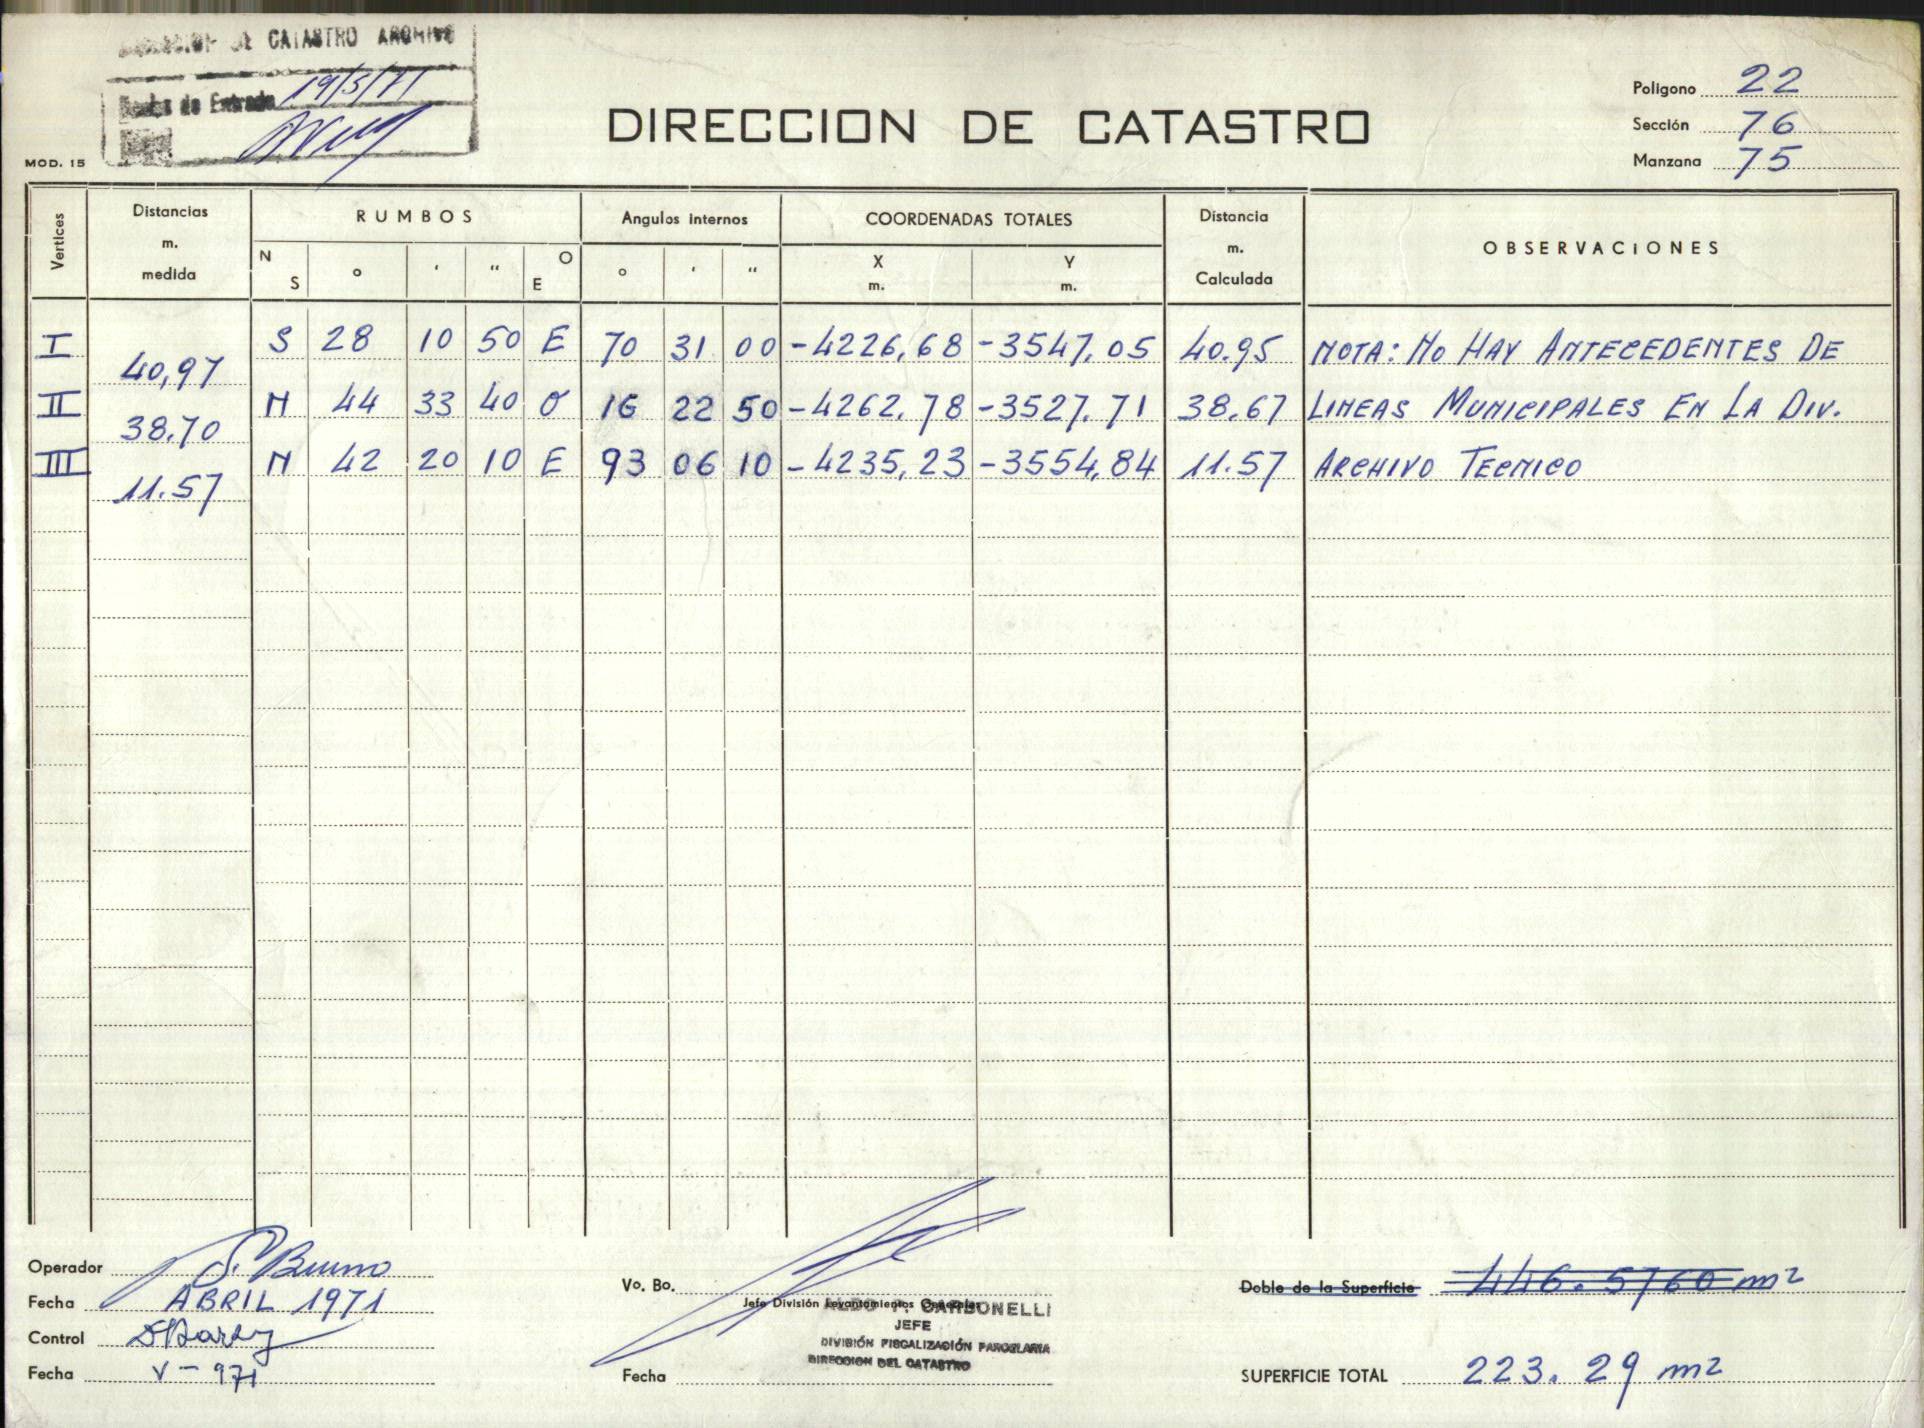 DIRECCION DE CATASTRO ARCHIVO
Fecha de Entrada 19/5/71
MOD. 15
DIRECCION DE CATASTRO
Poligono 22
Sección 76
Manzana 75
Vertices
Distancias
m.
medida
RUMBOS
N
S
°
'
"
O
E
Angulos internos
°
'
"
COORDENADAS TOTALES
X
m.
Y
m.
Distancia
m.
Calculada
OBSERVACIONES
I S 28 10 50 E 70 31 00 -4226,68 -3547,05 40.95 NOTA: NO HAY ANTECEDENTES DE
40,97
II N 44 33 40 O 16 22 50 -4262,78 -3527,71 38.67 LINEAS MUNICIPALES EN LA DIV.
38.70
III N 42 20 10 E 93 06 10 -4235,23 -3554,84 11.57 ARCHIVO TECNICO
11.57
Operador S. Bruno
Fecha ABRIL 1971
Control
Fecha V-971
Vo. Bo.
Jefe División Levantamientos Generales
ALDO P. CARBONELLI
JEFE
DIVISIÓN FISCALIZACIÓN PARCELARIA
DIRECCION DEL CATASTRO
Fecha
Doble de la Superficie 446.5760 m2
SUPERFICIE TOTAL 223.29 m2